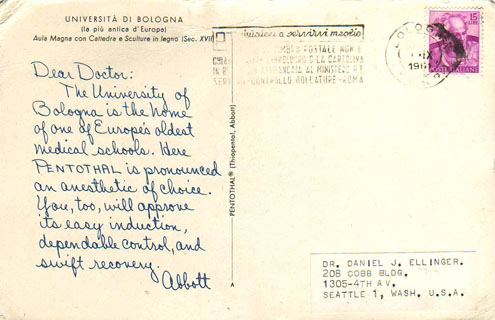 UNIVERSITÀ DI BOLOGNA
(la più antica d'Europa)
Aula Magna con Cattedra e Sculture in legno (Sec. XVII)
Dear Doctor:
The University of
Bologna is the home
of one of Europe's oldest
medical schools. Here
PENTOTHAL® is pronounced
an anesthetic of choice.
You, too, will approve
its easy induction,
dependable control, and
swift recovery.
Abbott
PENTOTHAL® (Thiopental, Abbott)
a servirvi meglio
POSTALE NON È
O LA CARTOLINA
AL MINISTERO P.T.
CONTROLLO BOLLATURE-ROMA
BOLOGNA
IX
15
ITALIANE
DR. DANIEL J. ELLINGER.
208 COBB BLDG.
1305-4TH AV.
SEATTLE 1, WASH. U.S.A.